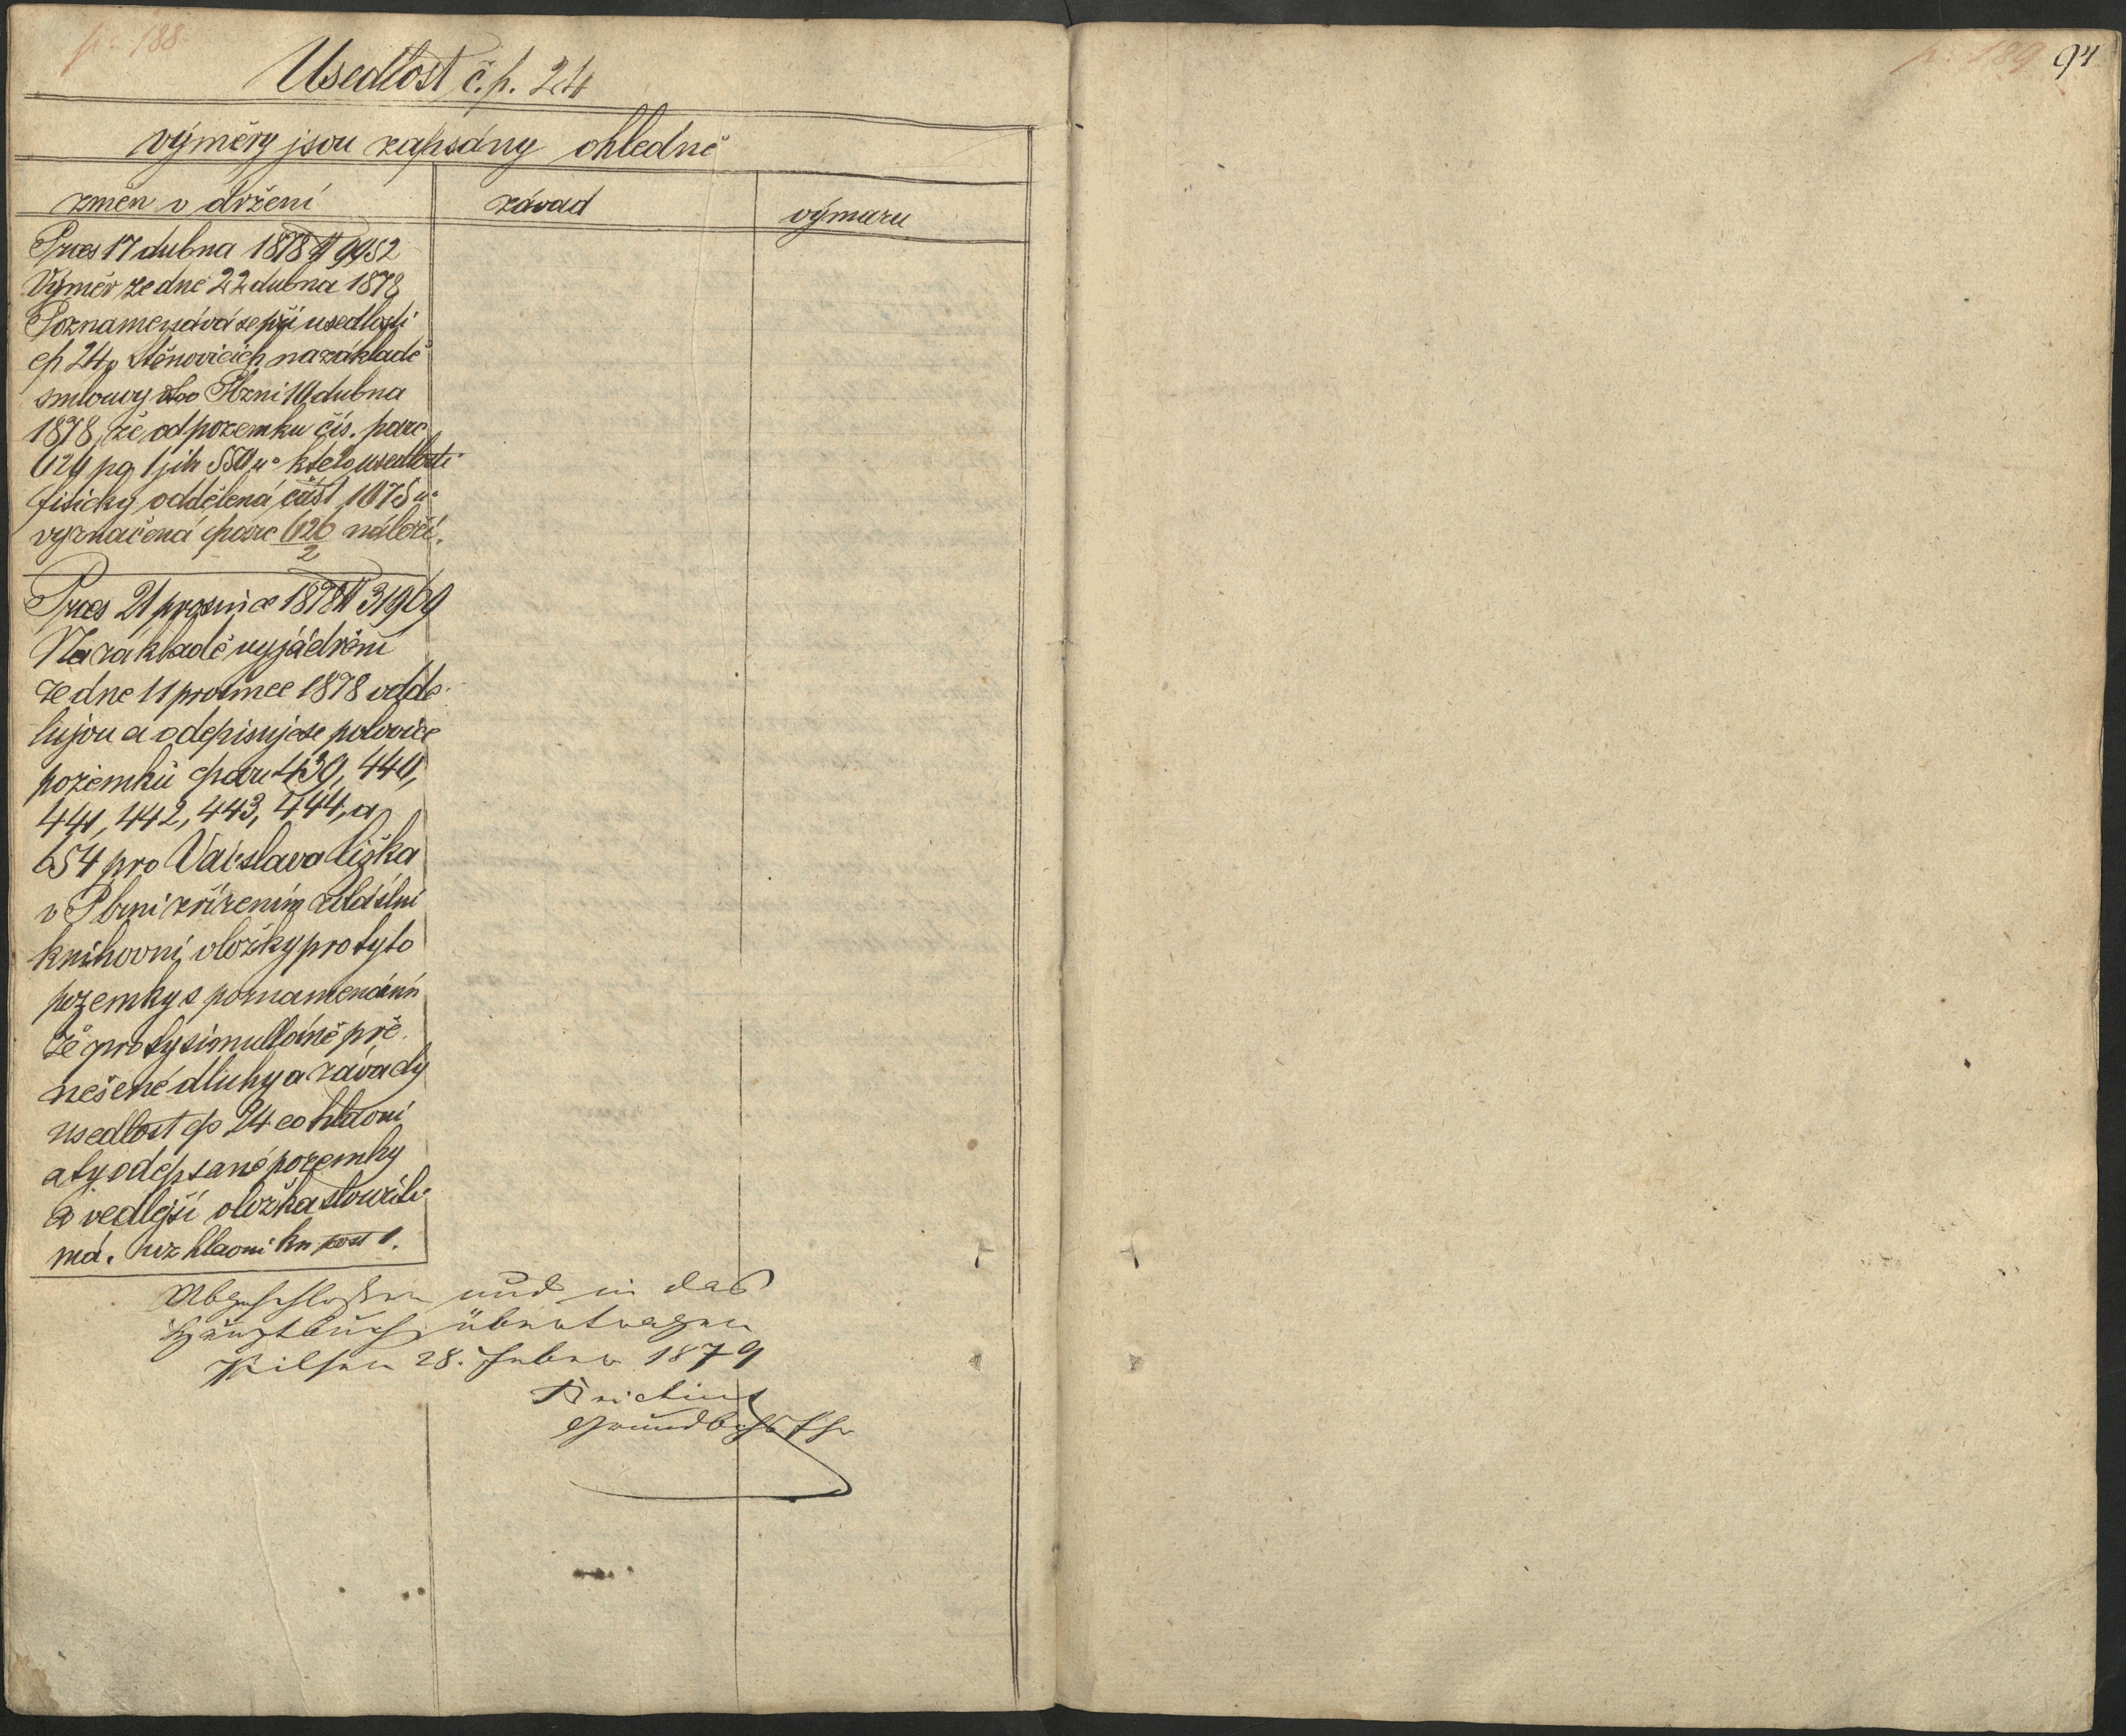 p. 188
Usedlost č. p. 24
výměry jsou zapsány ohledně
změn v držení
závad
výmazu
Praes 17 dubna 1878 # 9952
Výměr ze dne 22 dubna 1878
Poznamenává se při usedlosti
čp 24 v Stěnovicích na základě
smlouvy dto Plzni 10 dubna
1878, že od pozemku čís. parc
pg 1 jih k této usedlosti
fisicky oddělená část 1075
vyznačená čparc náleží.
2
Praes 21 prosince 1878 # 31969
Na základě vyjádření
ze dne 11 prosince 1878 odde-
lujou a odepisuje se polovice
pozemků čparc 439, 440,
441, 442, 443, 444, a
654 pro Václava Liška
v Plzni zřízením zvláštní
knihovní vložky pro tyto
pozemky s poznamenáním
že pro ty simultáně pře-
nešené dluhy a závady
usedlost čp 24 co hlavní
a ty odepsané pozemky
co vedlejší vložka sloužiti
má. viz hlavní kn post 1.
Abgeschlossen und in das
Hauptbuch übertragen
Pilsen 28. Feber 1879
Grundbchsfhr
p. 189
94